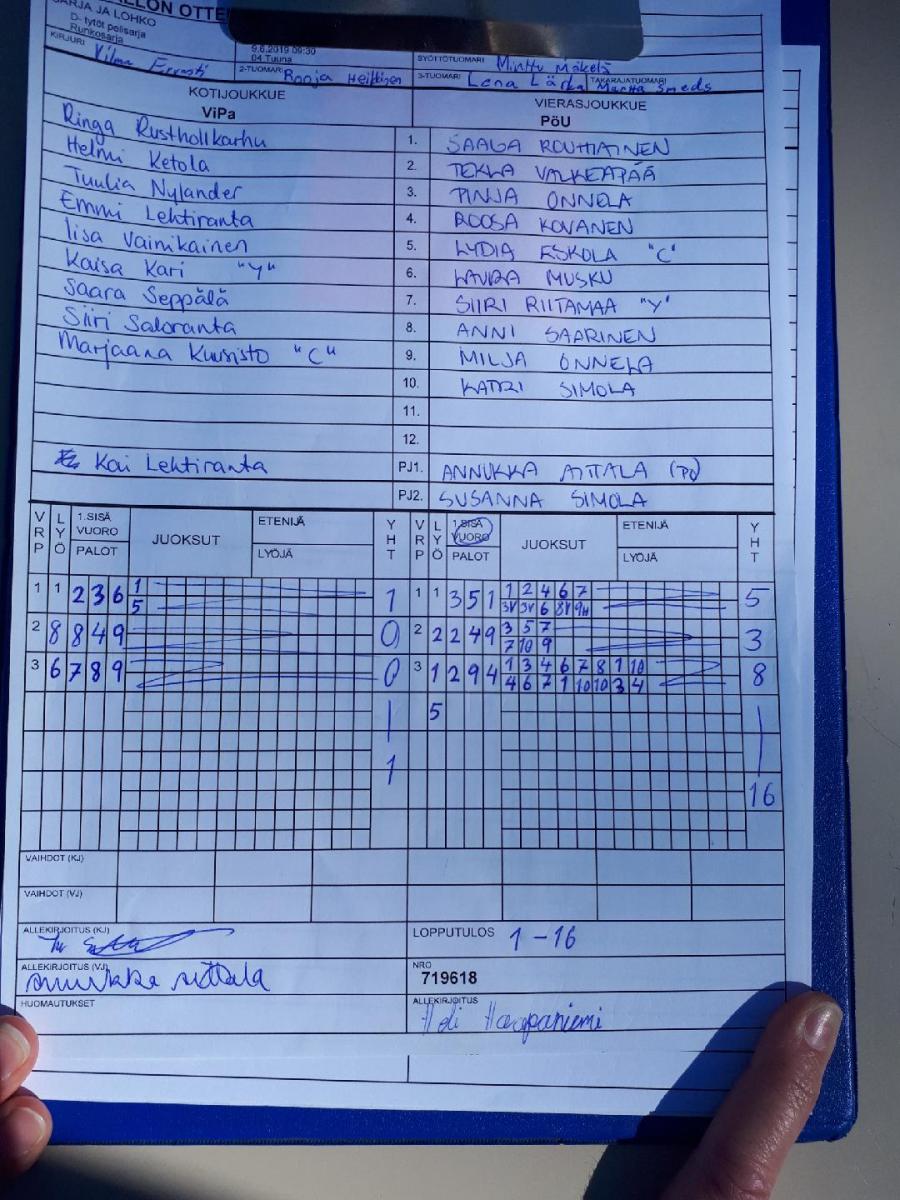 SARJA JA LOHKO
D- tytöt polisarja
Runkosarja
9.6.2019 09:30
04 Tuuna
KIRJURI Vilma
2-TUOMARI Heittinen
SYÖTTÖTUOMARI Minttu Mäkelä
3-TUOMARI Lena TAKARAJATUOMARI Martta Smeds
KOTIJOUKKUE VIERASJOUKKUE
ViPa PöU
Ringa Rusthollkarhu 1. SAAGA ROUHIAINEN
Helmi Ketola 2. TEKLA VALKEAPÄÄ
Tuulia Nylander 3. PINJA ONNELA
Emmi Lehtiranta 4. ROOSA KOVANEN
Iisa Vainikainen 5. LYDIA ESKOLA "C"
Kaisa Kari "Y" 6. LAURA MUSKU
Saara Seppälä 7. SIIRI RIITAMAA "Y"
Siiri Saloranta 8. ANNI SAARINEN
Marjaana Kuusisto "C" 9. MILJA ONNELA
10. KATRI SIMOLA
11.
12.
Kai Lehtiranta PJ1. ANNUKKA AITTALA (PJ)
PJ2. SUSANNA SIMOLA
VRP LYÖ 1.SISÄ VUORO PALOT JUOKSUT ETENIJÄ LYÖJÄ YHT VRP LYÖ 1.SISÄ VUORO PALOT JUOKSUT ETENIJÄ LYÖJÄ YHT
1 1 2 3 6 1 1 1 1 3 5 1 1 2 4 6 7 5
5 3V 3V 6 8V 9H
2 8 8 4 9 0 2 2 2 4 9 3 5 7 3
7 10 9
3 6 7 8 9 0 3 1 2 9 4 1 3 4 6 7 8 1 10 8
4 6 7 1 10 10 3 4
5
1
16
VAIHDOT (KJ)
VAIHDOT (VJ)
ALLEKIRJOITUS (KJ) LOPPUTULOS 1 - 16
ALLEKIRJOITUS (VJ) annukka aittala NRO
719618
HUOMAUTUKSET ALLEKIRJOITUS
Haapaniemi